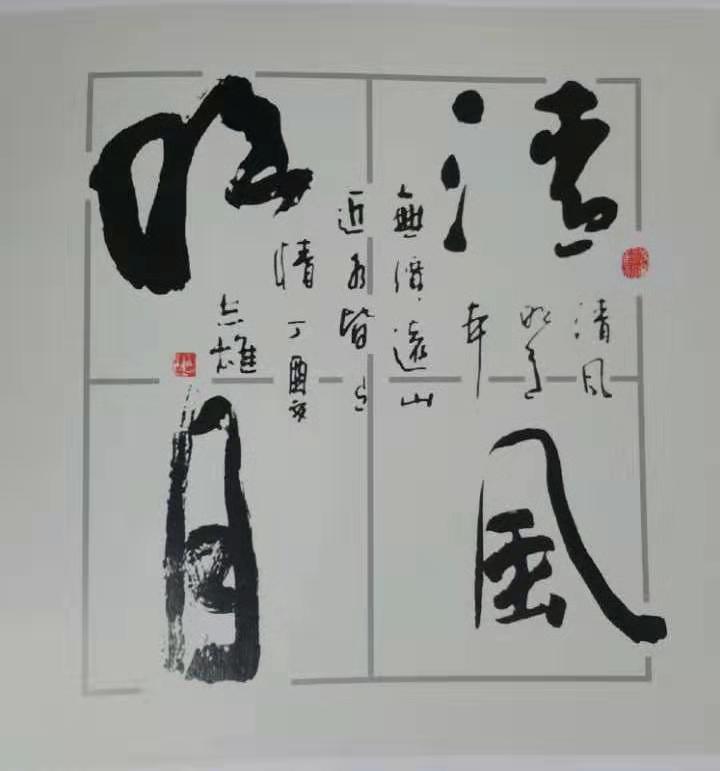 清風
明月
清风
明月
本
無價遠山
近水皆有
情丁酉
志雄